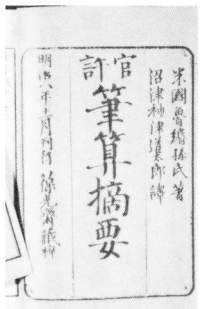 米國魯繽孫氏著
沼津神津道太郎譯
官許
筆算摘要
明治八年
月刊行